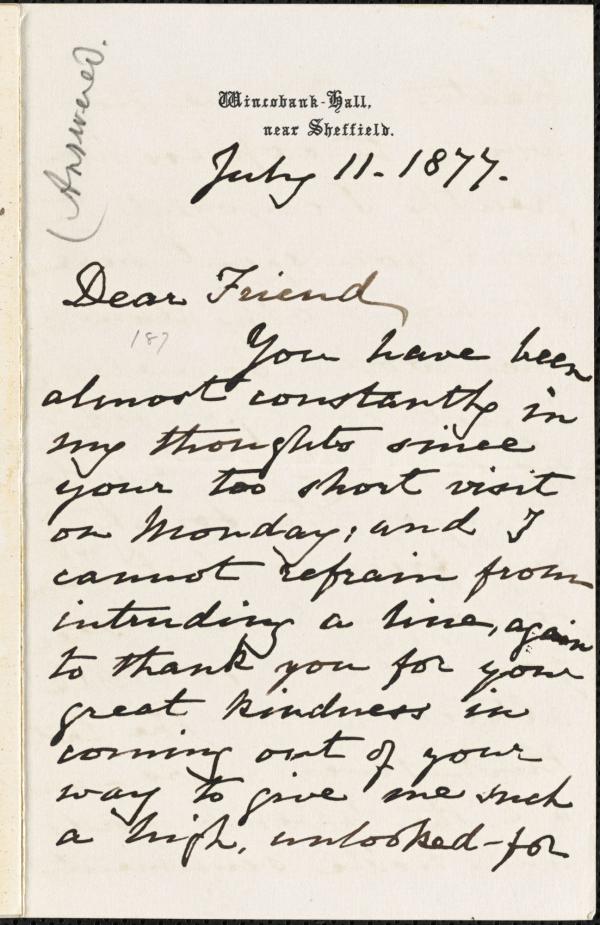 (Answered.
Wincobank-Hall,
near Sheffield.
July 11. 1877.
Dear Friend
187
You have been
almost constantly in
my thoughts since
your too short visit
on Monday; and I
cannot refrain from
intruding a line, again
to thank you for your
great kindness in
coming out of your
way to give me such
a high, unlooked-for